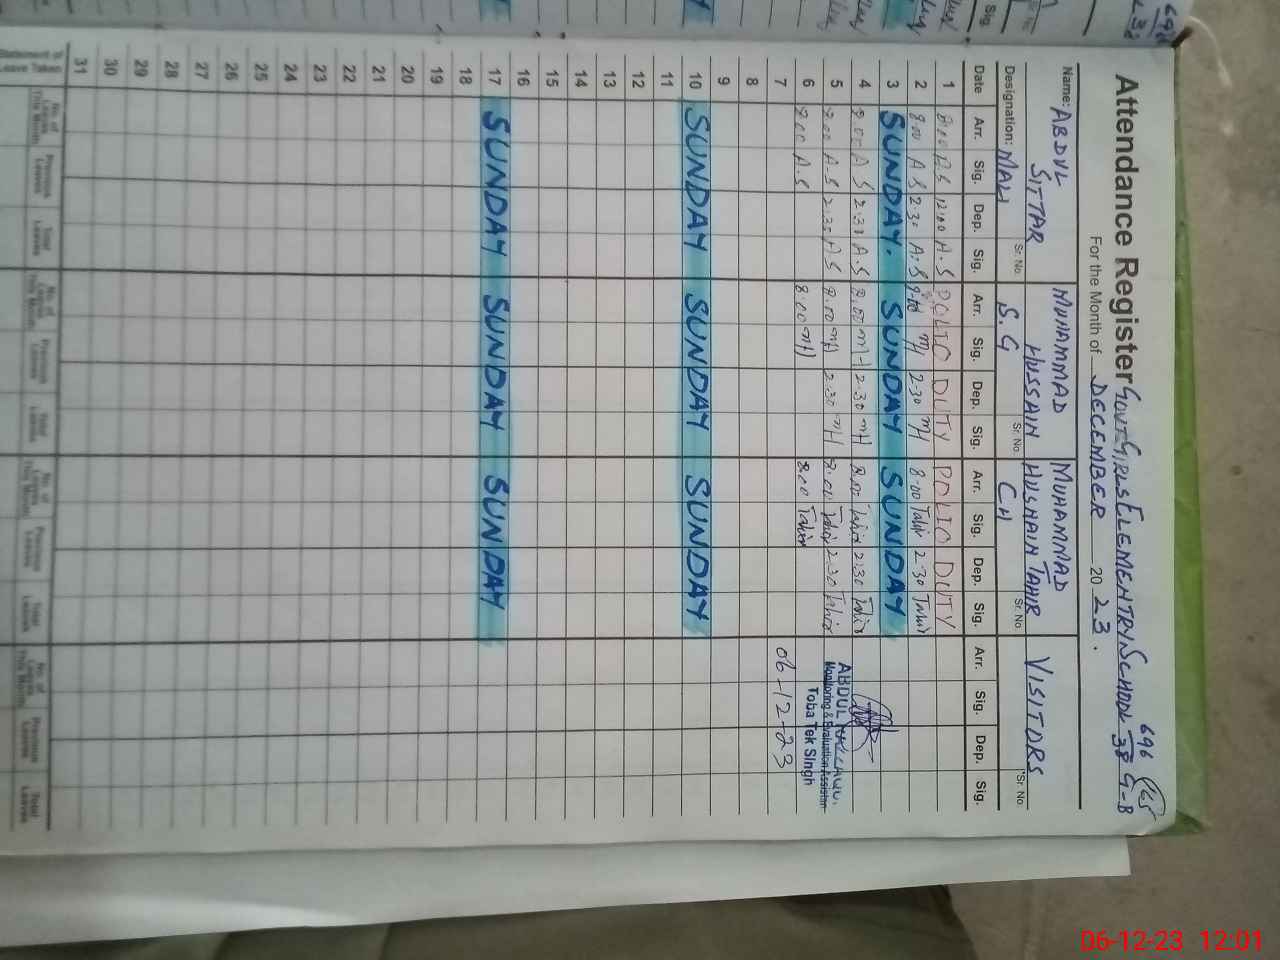 Attendance Register GOVT GIRLS ELEMENTRY SCHOOL 696/38 G-B
165
For the Month of DECEMBER 2023.
Name: ABDUL SITTAR MUHAMMAD HUSSAIN MUHAMMAD HUSNAIN TAHIR VISITORS
Designation: MALI Sr. No. S.G Sr. No. CH Sr. No. Sr. No.
Date Arr. Sig. Dep. Sig. Arr. Sig. Dep. Sig. Arr. Sig. Dep. Sig. Arr. Sig. Dep. Sig.
1 8:00 A.S 12:00 A.S POLIO DUTY POLIO DUTY
2 8:00 A.S 2:30 A.S MH 2-30 MH 8-00 Tahir 2-30 Tahir
3 SUNDAY. SUNDAY SUNDAY
4 8:00 A.S 2:30 A.S 8:00 MH 2:30 MH 8:00 Tahir 2:30 Tahir
5 8:00 A.S 2:30 A.S 8:00 MH 2:30 MH 8:00 Tahir 2:30 Tahir
ABDUL
Monitoring & Evaluation Assistan
Toba Tek Singh
6 8:00 A.S 8:00 MH 8:00 Tahir
7 06-12-23
8
9
10 SUNDAY SUNDAY SUNDAY
11
12
13
14
15
16
17 SUNDAY SUNDAY SUNDAY
18
19
20
21
22
23
24
25
26
27
28
29
30
31
Statement of Leave Taken No. of Leaves This Month Previous Leaves Total Leaves No. of Leaves This Month Previous Leaves Total Leaves No. of Leaves This Month Previous Leaves Total Leaves No. of Leaves This Month Previous Leaves Total Leaves
06-12-23 12:01